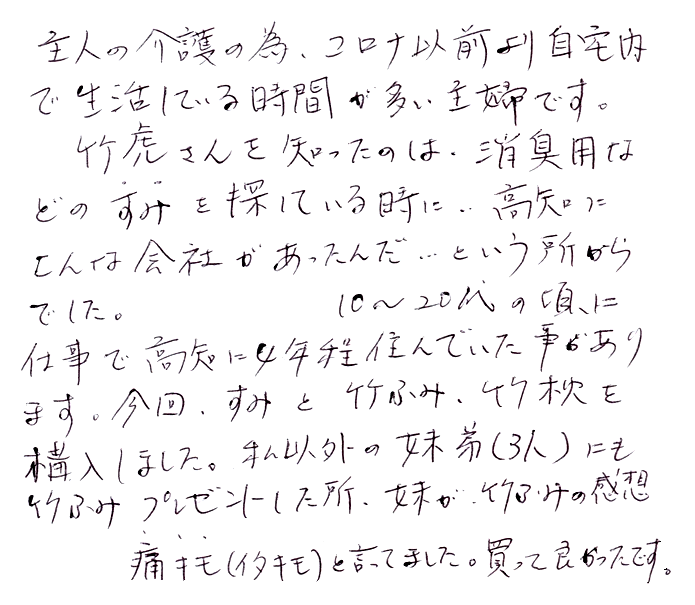 主人の介護の為、コロナ以前より自宅内
で生活している時間が多い主婦です。
竹虎さんを知ったのは、消臭用な
どのすみを探している時に‥高知に
こんな会社があったんだ…という所から
でした。 10～20代の頃、に
仕事で高知に4年程住んでいた事があり
ます。今回、すみと竹ふみ、竹枕を
購入しました。私以外の妹弟(3人)にも
竹ふみプレゼントした所、妹が、竹ふみの感想
痛キモ(イタキモ)と言ってました。買って良かったです。